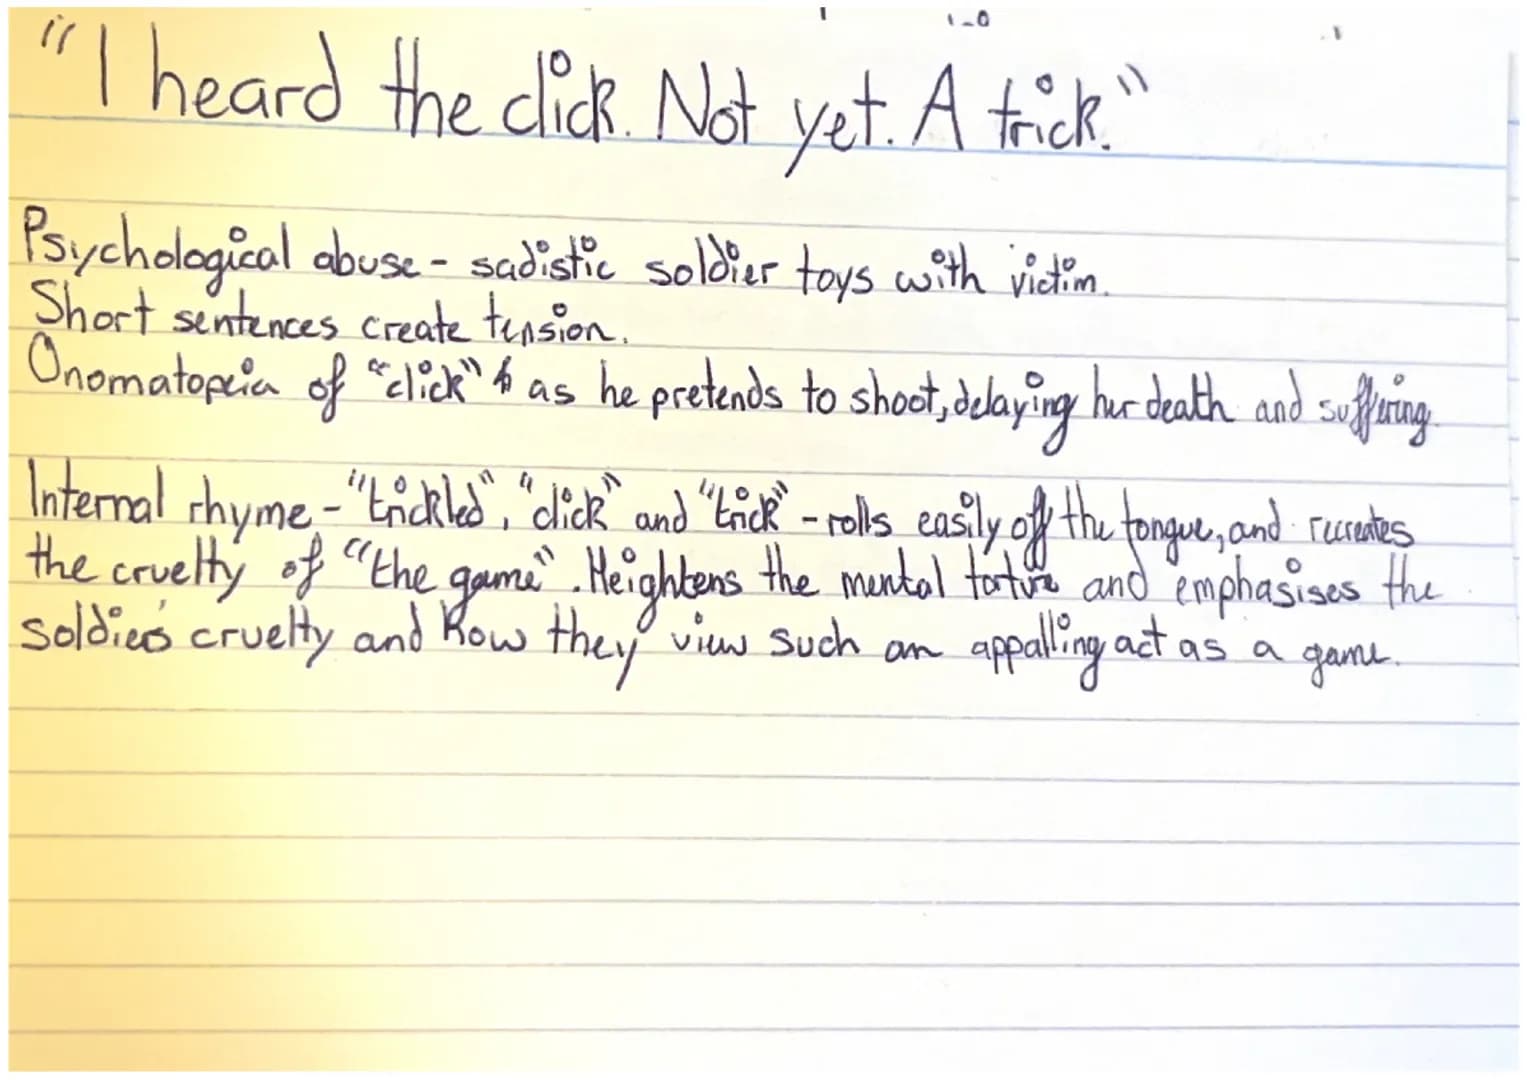 "I heard the click. Not yet. A trick."
Psychological abuse - sadistic soldier toys with victim.
Short sentences create tension.
Onomatopeia of "click" as he pretends to shoot, delaying her death and suffering.
Internal rhyme - "trickled", "click" and "trick" - rolls easily off the tongue, and recreates
the cruelty of "the game". Heightens the mental torture and emphasises the
soldier's cruelty and how they view such an appalling act as a game.